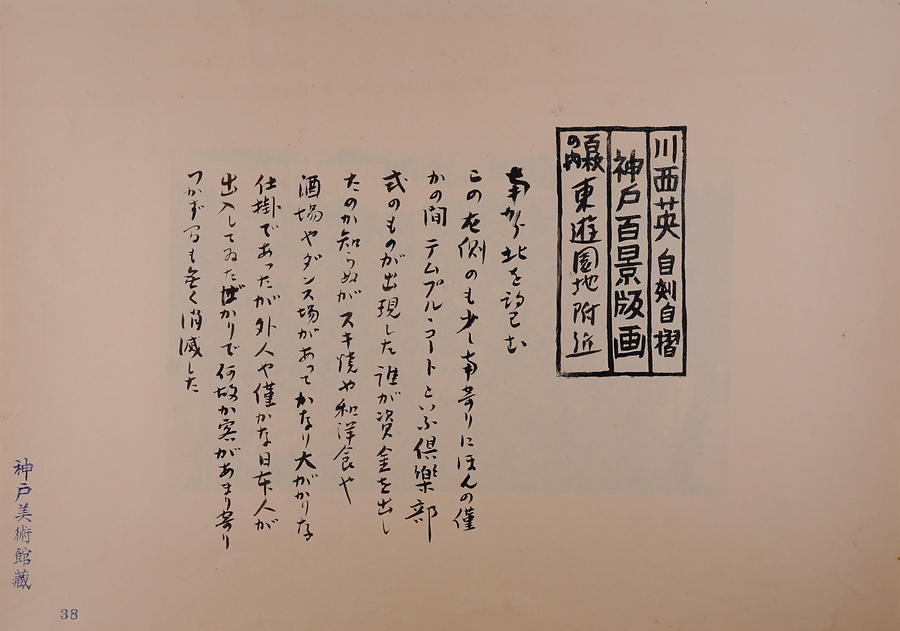 川西英 自刻自摺
神戸百景版画
百枚の内 東遊園地附近
南から北を望む
この右側のも少し南寄りにほんの僅
かの間テムプル・コートといふ倶楽部
式のものが出現した誰が資金を出し
たのか知らぬがスキ焼や和洋食や
酒場やダンス場があってかなり大がかりな
仕掛であったが外人や僅かな日本人が
出入してゐたばかりで何故か客があまり寄り
つかず間も無く消滅した
神戸美術館蔵
38